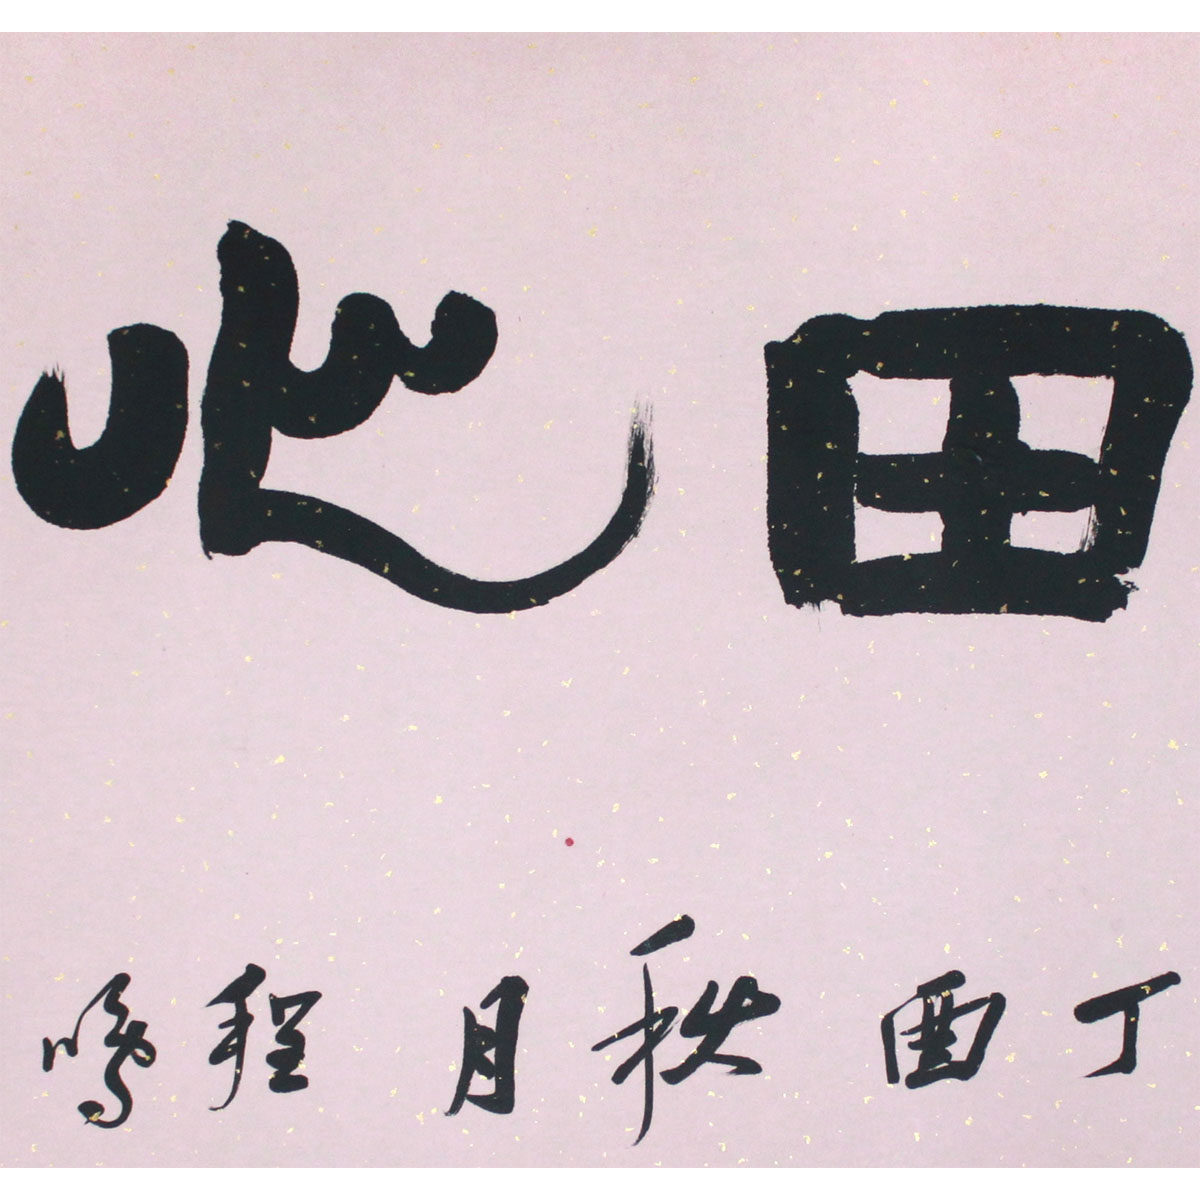 田心
丁酉秋月程鸣